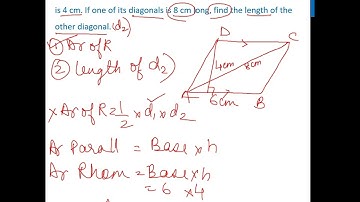 is 4 cm. If one of its diagonals is 8 cm long, find the length of the
other diagonal. (d2)
① Ar of R
② length of d2)
x Ar of R = 1/2 x d1 x d2
Ar Parall = Base x h
Ar Rhom = Base x h
= 6 x 4
D
C
4cm
8cm
A
6cm
B